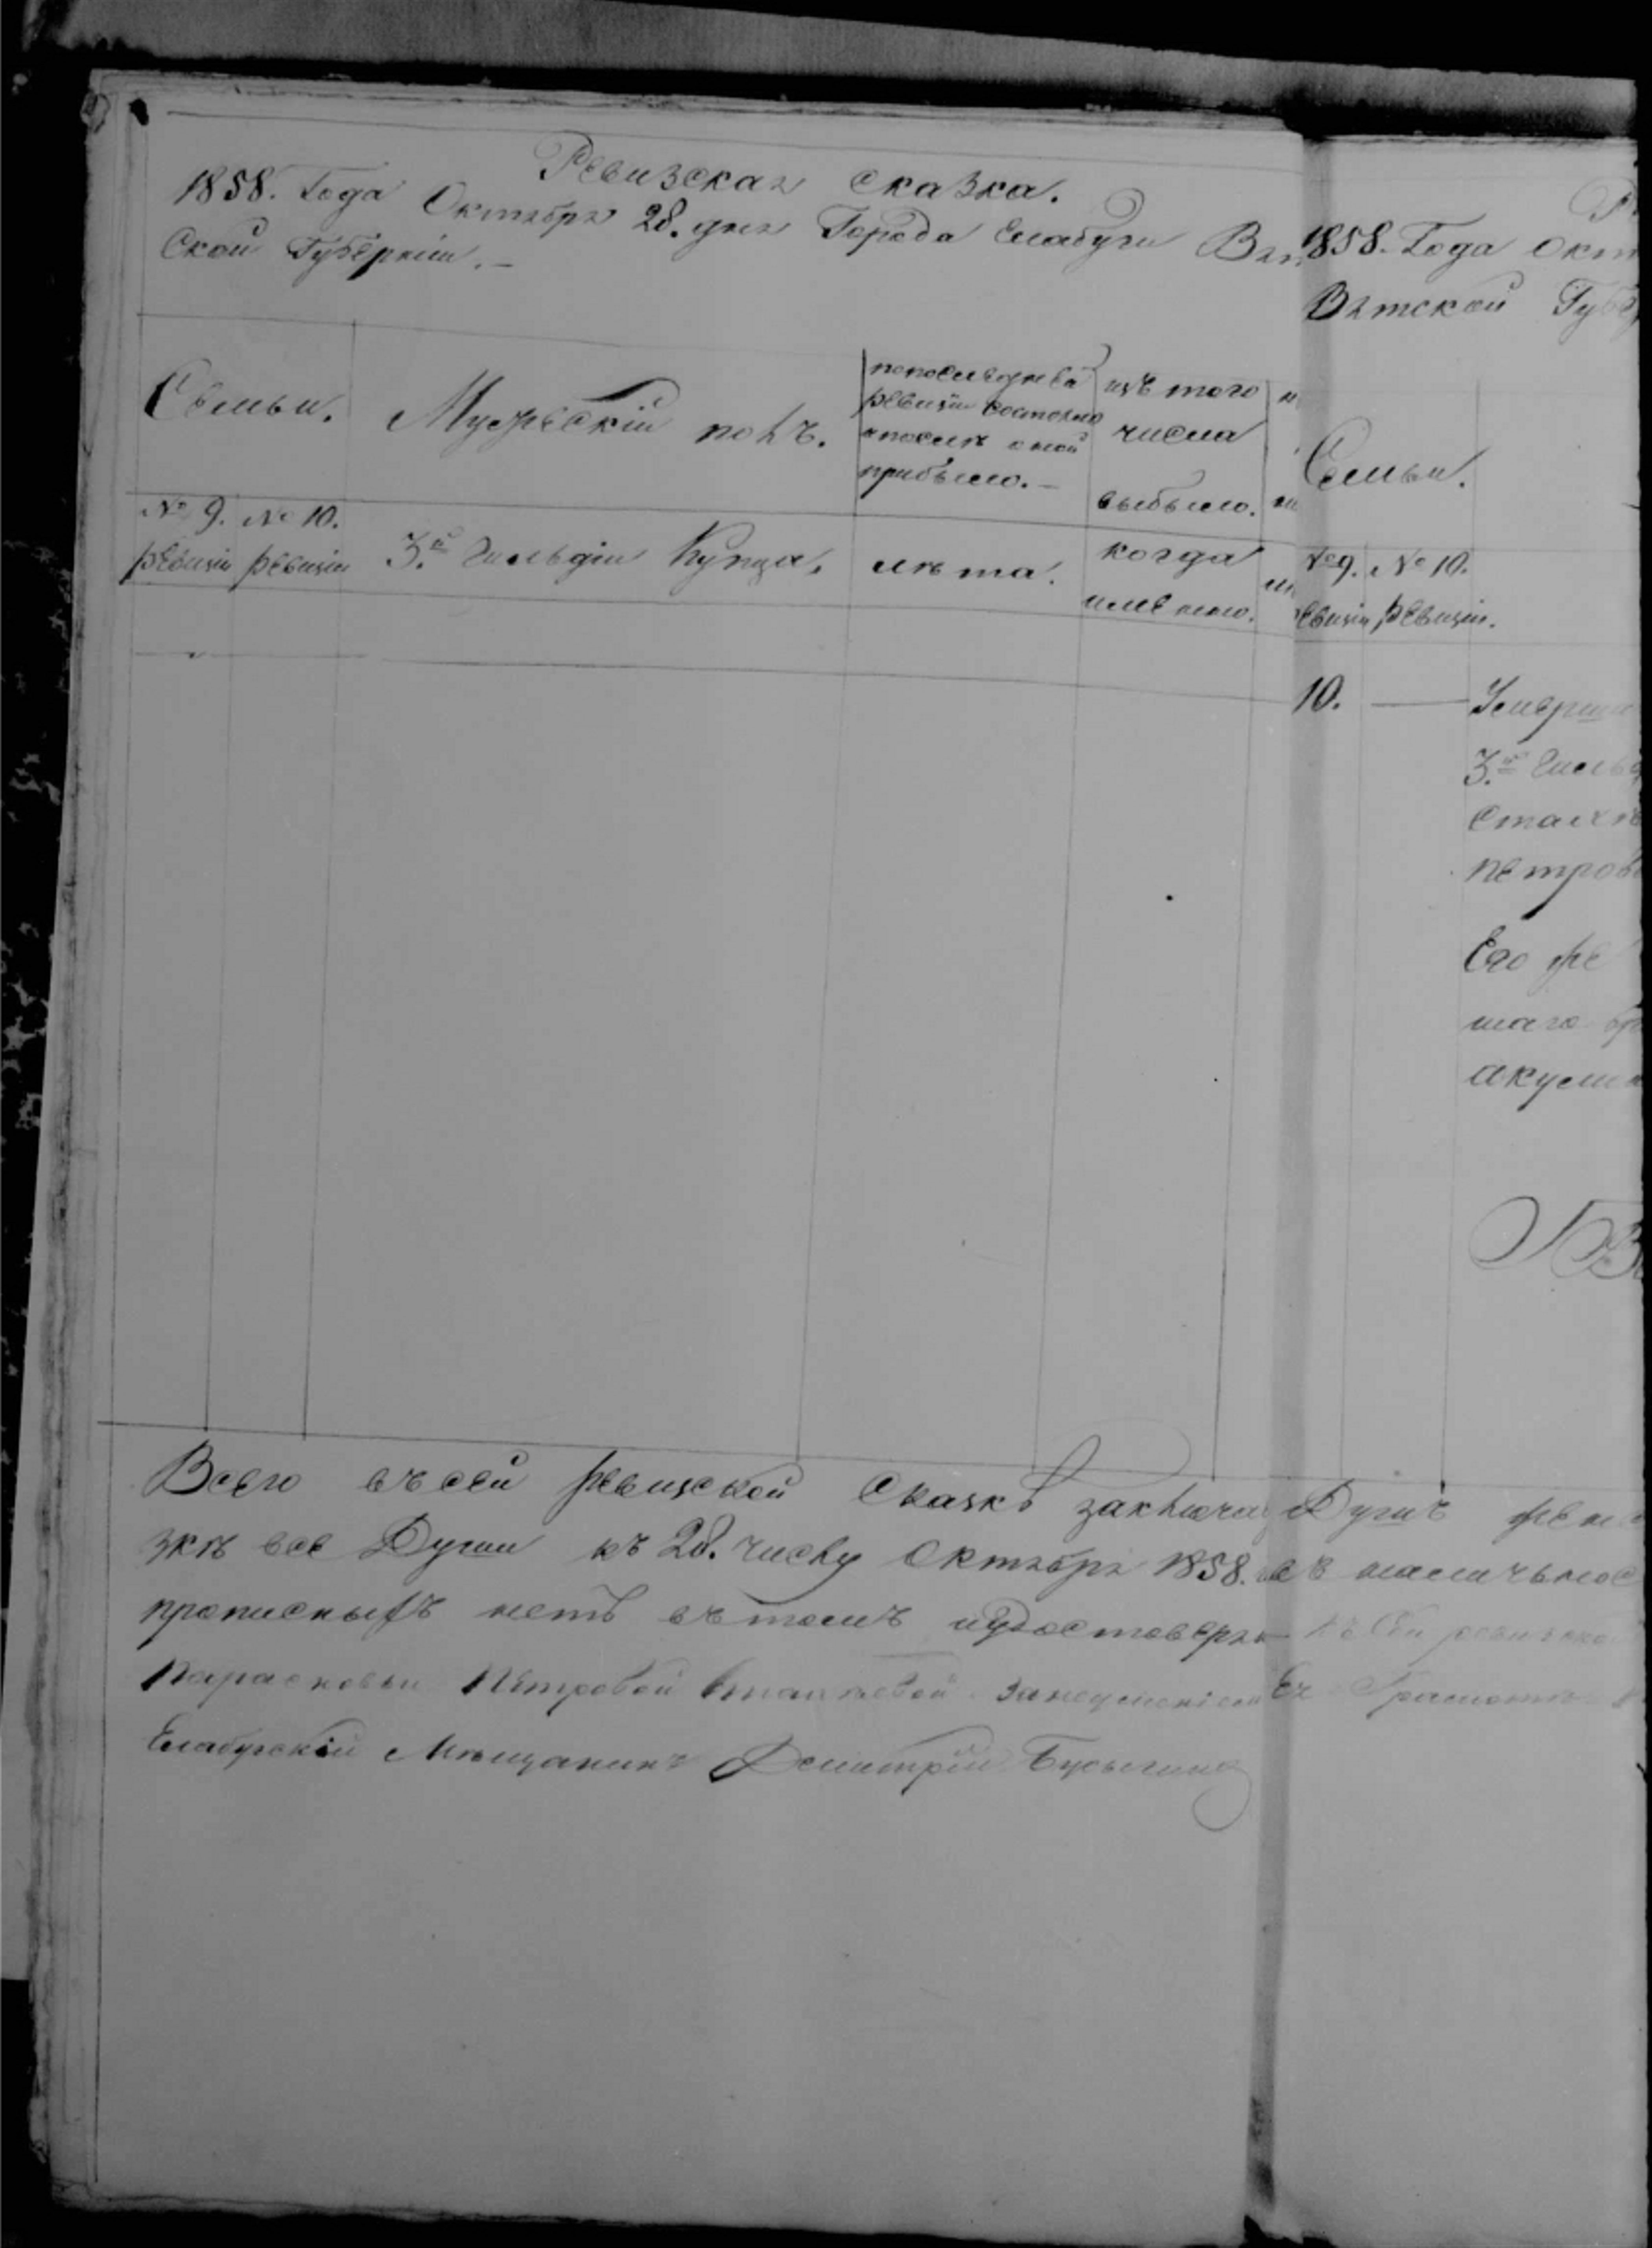 Ревизская сказка.
1858. Года Октября 28. дня Города Елабуги Вят
Ской Губерніи. –
Семьи.
Мужескій полъ.
попоследней
ревизіи состояло
и после оной
прибыло. –
изъ того
числа
выбыло.
№ 9. № 10.
ревизіи ревизіи
3.й Гильдіи Купца.
лѣта.
когда
именно.
Всего въ сей ревизской Сказкѣ заключа
все Души къ 28. числу Октября 1858.
прописныхъ нетъ въ томъ
Парасковьи Петровой
Елабужскій Мѣщанинъ Димитрій Бусыгинъ
1858. Года Окт
Вятской Губе
Семьи.
№ 9. № 10.
ревизіи ревизіи.
10. — Умерша
3.й Гильд
Петров
Его же
акулин
Душъ жен
въ наличьнос
въ Сей ревизско